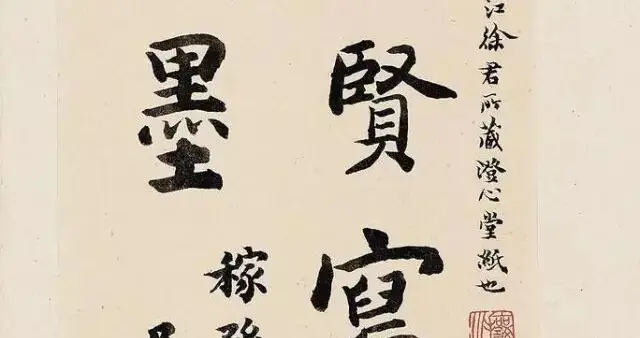 江徐君所藏澄心堂紙也
賢寫
墨
稼孫